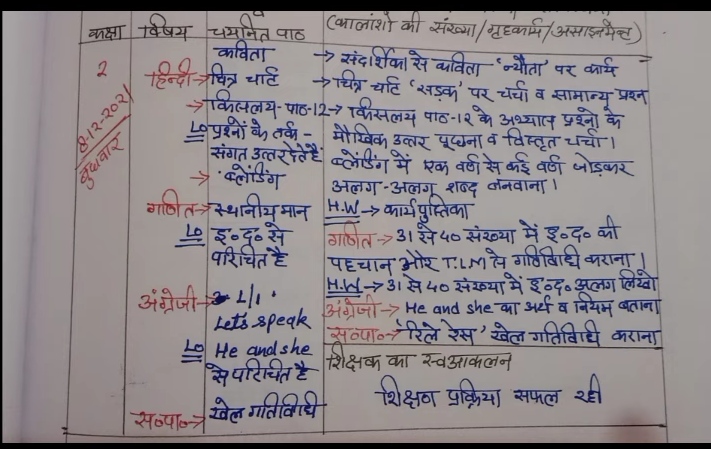 कक्षा विषय चयनित पाठ (कालांशों की संख्या/गृहकार्य/असाइनमेन्ट)
कविता → संदर्शिका से कविता 'न्यौता' पर कार्य
2 हिन्दी→चित्र चार्ट → चित्र चार्ट 'सड़क' पर चर्चा व सामान्य प्रश्न
→ किसलय-पाठ-12→ किसलय पाठ-12 के अभ्यास प्रश्नों के
8-12-2021 LO प्रश्नों के तर्क- मौखिक उत्तर पूछना व विस्तृत चर्चा।
बुधवार संगत उत्तर देते हैं ब्लेंडिंग में एक वर्ण से कई वर्ण जोड़कर
→ ब्लेंडिंग अलग-अलग शब्द बनवाना।
गणित→स्थानीय मान H.W→ कार्यपुस्तिका
LO इ०द० से गणित→ 31 से 40 संख्या में इ०द० की
परिचित है पहचान और T.L.M से गतिविधि कराना।
H.W→31 से 40 संख्या में इ०द० अलग लिखो
अंग्रेजी→ L/1 अंग्रेजी→ He and she का अर्थ व नियम बताना
Let's speak स०पा०→ 'रिले रेस' खेल गतिविधि कराना
LO He and she शिक्षक का स्वआकलन
से परिचित है
शिक्षण प्रक्रिया सफल रही
स०पा०→ खेल गतिविधि